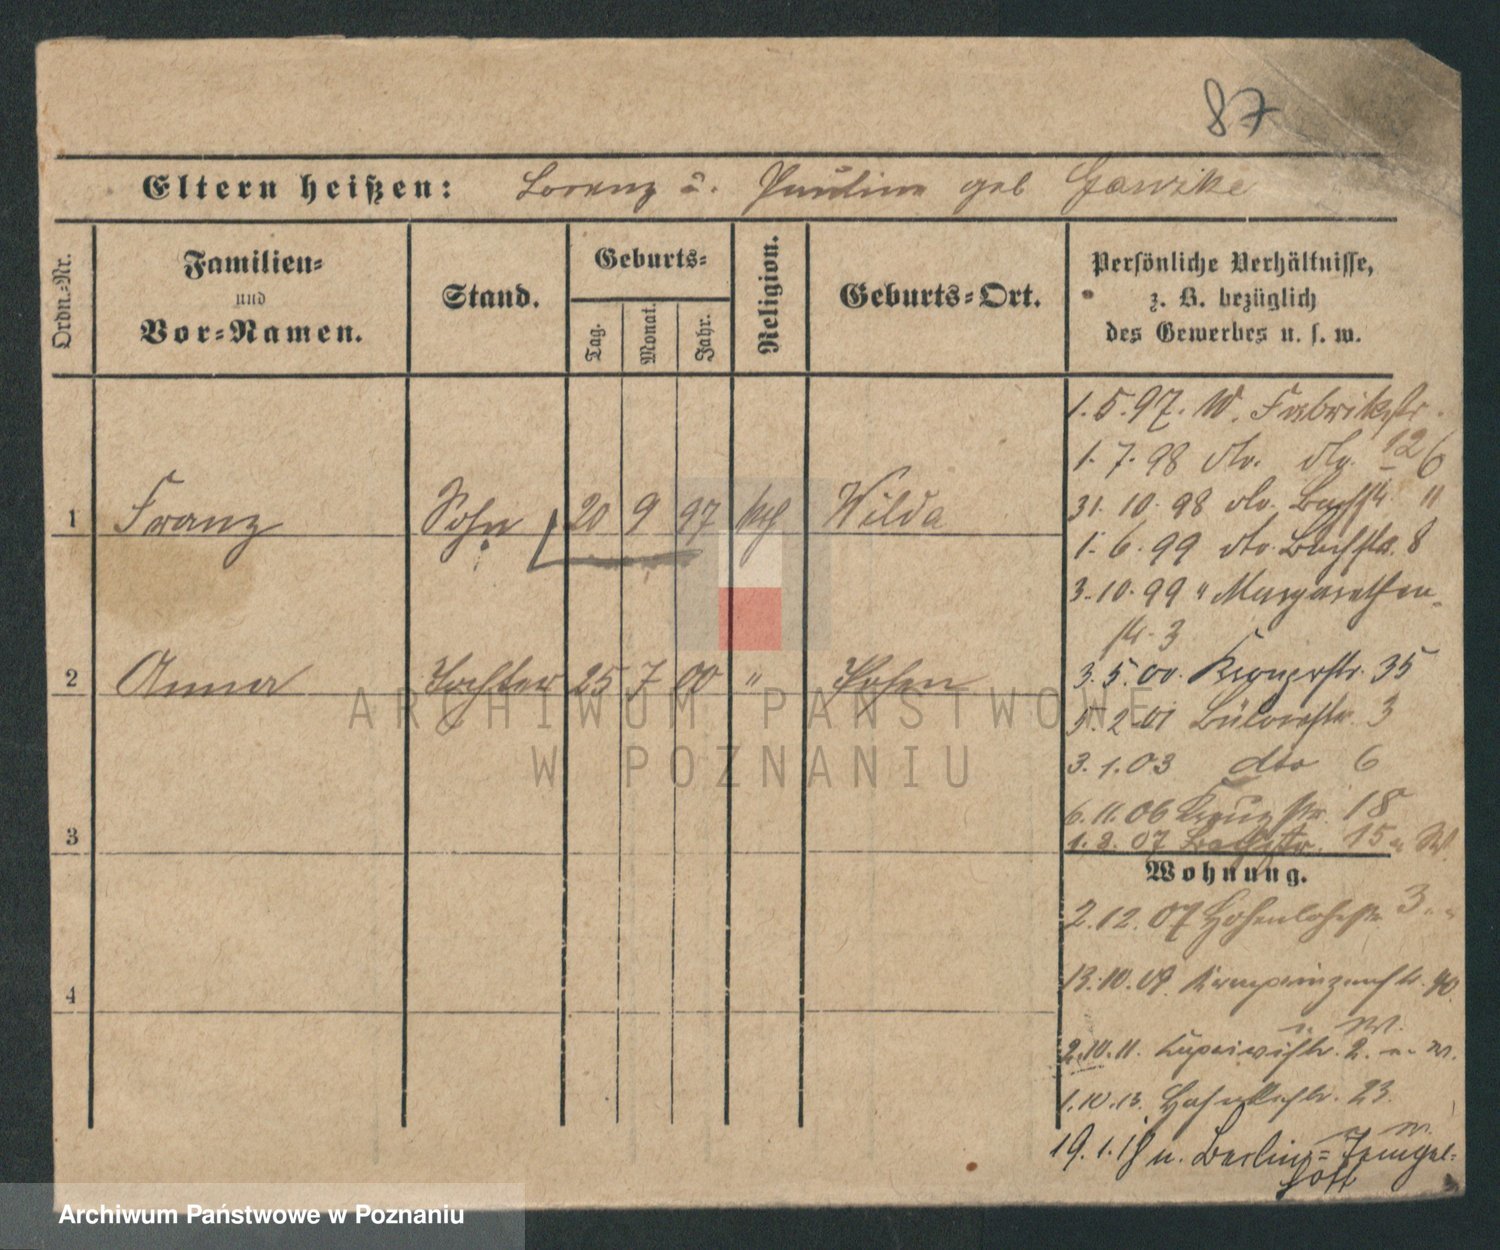 87
Eltern heißen: Lorenz u. Pauline geb Gawzke
Ordn.-Nr.
Familien-
und
Vor-Namen.
Stand.
Geburts-
Tag.
Monat.
Jahr.
Religion.
Geburts-Ort.
Persönliche Verhältnisse,
z. B. bezüglich
des Gewerbes u. s. w.
1 Franz Sohn 20 9 97 kth Wilda
2 Anna Tochter 25 7 00 " Posen
3
4
1.5.97. W. Fabrikstr.
1.7.98 dto. dto. 12 6
31.10.98 dto. Bachst 4 "
1.6.99 dto. Bachstr. 8
3.10.99 " Margarethen-
str. 3
3.5.00. Kronprstr. 35
5.2.01 Bülowstr. 3
3.1.03 dto 6
6.11.06 Kreuzstr. 18
1.2.07 Bachstr. 15 W.
Wohnung.
2.12.07 Hohenlohestr. 3
13.10.09. Kronprinzenstr. 90
W.
2.10.11. Caprivistr. 2.
1.10.13. 23.
19.1.18 n. Berlin-Tempel-
hof
ARCHIWUM PAŃSTWOWE
W POZNANIU
Archiwum Państwowe w Poznaniu